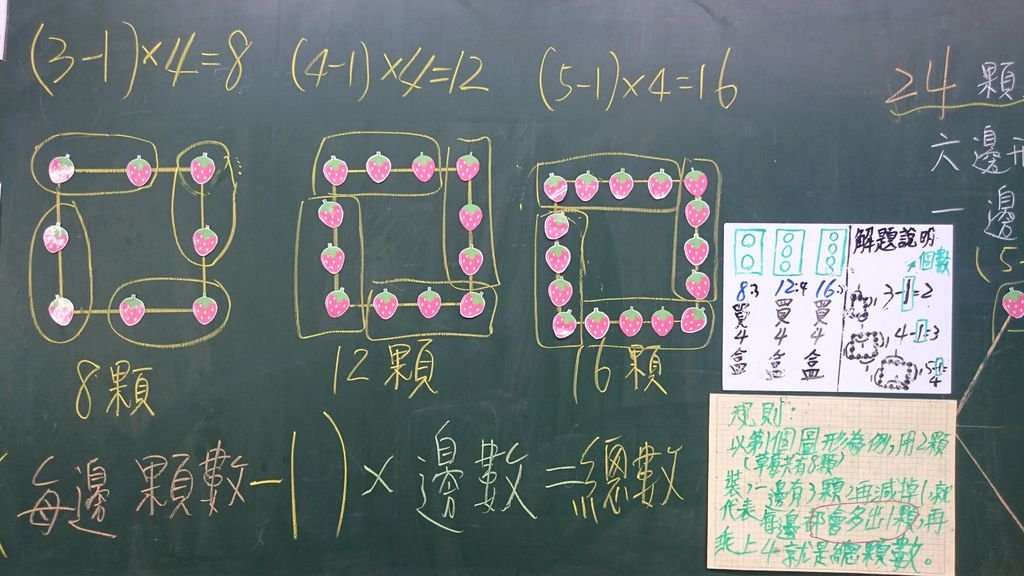 (3-1)×4=8
(4-1)×4=12
(5-1)×4=16
24 顆
六邊形
一邊
(5-
8顆
12顆
16顆
(每邊顆數-1)×邊數=總數
解題說明
個數
8 12 16
買 買 買
4 4 4
盒 盒 盒
3-1=2
4-1=3
5-1=4
規則:
以第1個圖形為例,用2顆
(草莓共有8顆)
裝,一邊有3顆,再減掉1,就
代表每邊都會多出1顆,再
乘上4就是總顆數。